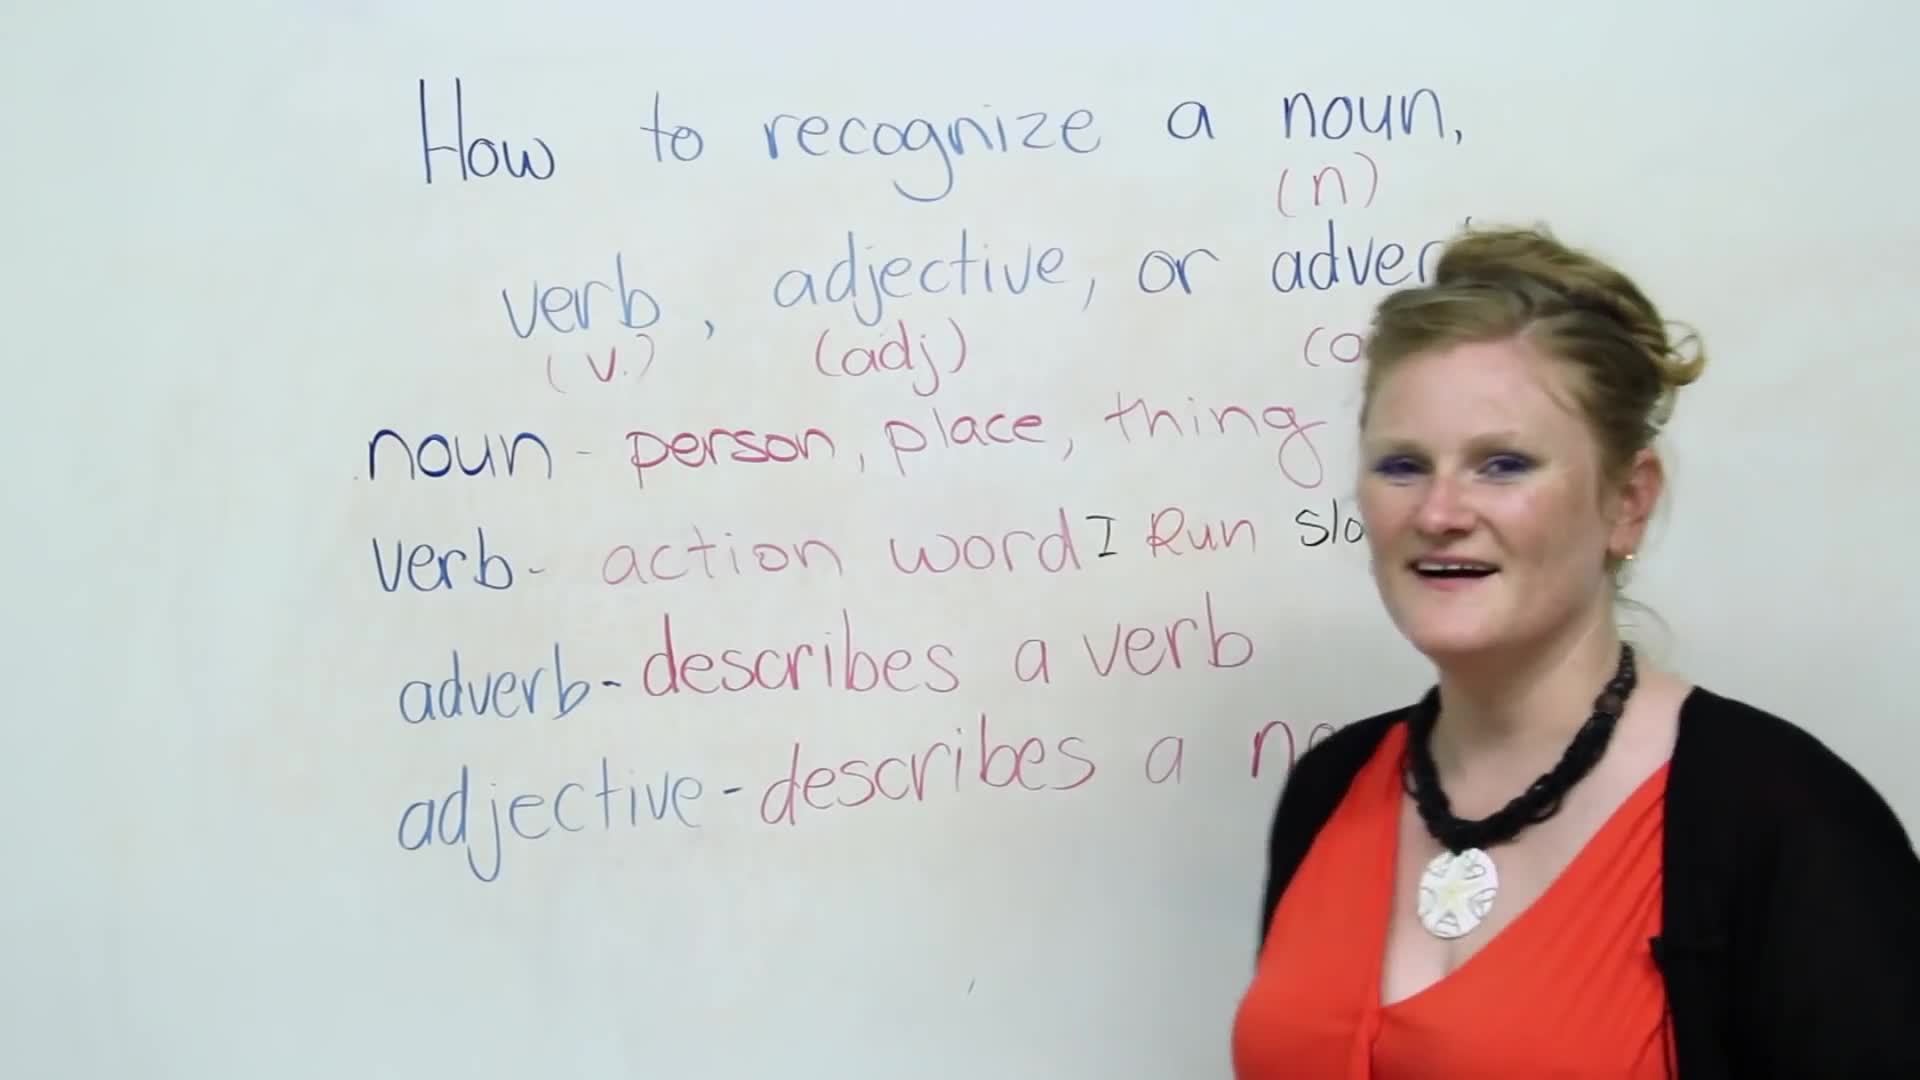 How to recognize a noun,
(n)
verb, adjective, or adver
(v.) (adj)
noun - person, place, thing
verb - action word I Run slo
adverb - describes a verb
adjective - describes a